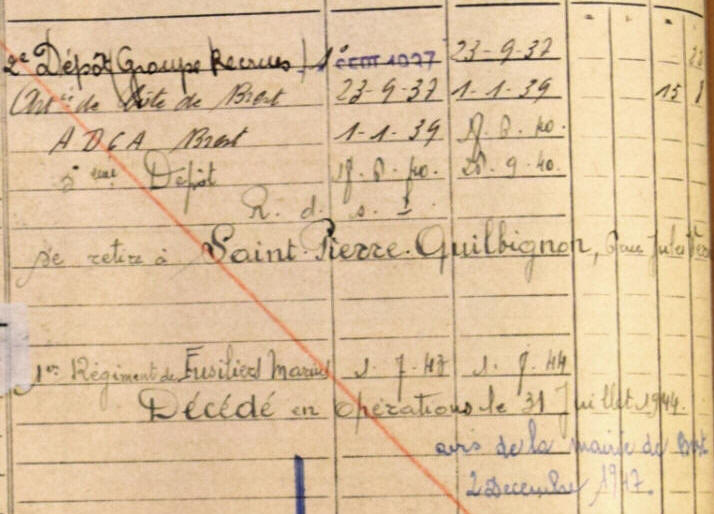 2e Dépôt (Groupe Recrues) 1° SEPT 1937 23-9-37
Artie de Côte de Brest 23-9-37 1-1-39 15 8
A D C A Brest 1-1-39 18.8.40.
5ème Dépôt 18.8.40. 28.9.40.
R. d. s. F.
Se retire à Saint-Pierre-Quilbignon, 6 rue Jules
1er Régiment de Fusiliers Marins 1.7.43 1.7.44
Décédé en opérations le 31 Juillet 1944.
avis de la mairie de Brest
2 Decembre 1947.